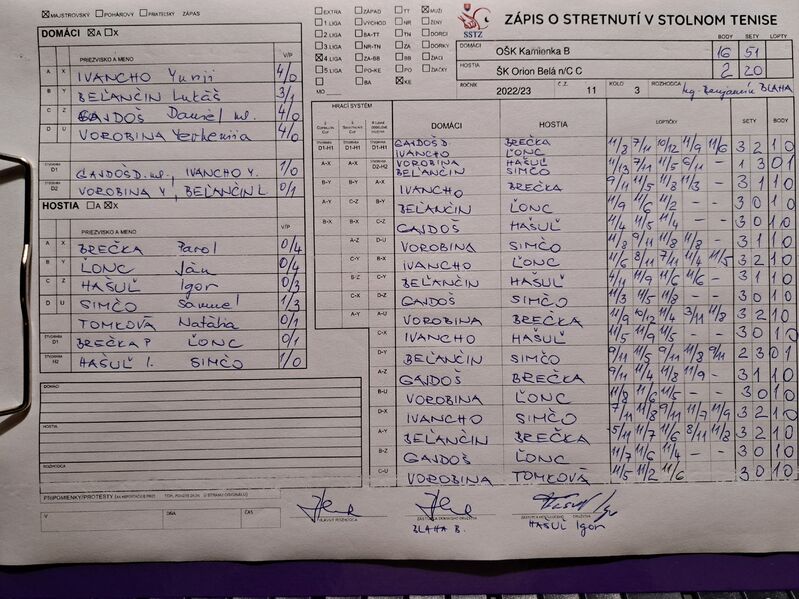 MAJSTROVSKÝ POHÁROVÝ PRIATEĽSKÝ ZÁPAS
EXTRA ZÁPAD TT MUŽI
1 LIGA VÝCHOD NR ŽENY
2 LIGA BA-TT TN DORCI
3 LIGA NR-TN ZA DORKY
4 LIGA ZA-BB BB ŽIACI
5 LIGA PO-KE PO ŽIAČKY
MO BA KE
SSTZ
ZÁPIS O STRETNUTÍ V STOLNOM TENISE
BODY SETY LOPTY
DOMÁCI OŠK Kamienka B 16 51
HOSTIA ŠK Orion Belá n/C C 2 20
ROČNÍK 2022/23 Č. Z. 11 KOLO 3 ROZHODCA Ing. Benjamín BLAHA
DOMÁCI A X
PRIEZVISKO A MENO V/P
A X IVANCHO Yurij 4/0
B Y BEĽANČIN Lukáš 3/1
C Z GAJDOŠ Daniel ml. 4/0
D U VOROBINA Yevheniia 4/0
ŠTVORHRA D1 GAJDOŠ D. ml., IVANCHO Y. 1/0
ŠTVORHRA D2 VOROBINA Y, BEĽANČIN L. 0/1
HOSTIA A X
PRIEZVISKO A MENO V/P
A X BREČKA Pavol 0/4
B Y ĽONC Ján 0/4
C Z HAŠUĽ Igor 0/3
D U SIMČO Samuel 1/3
TOMKOVÁ Natália 0/1
ŠTVORHRA BREČKA P ĽONC 0/1
ŠTVORHRA H2 HAŠUĽ I. SIMČO 1/0
DOMÁCI
HOSTIA
ROZHODCA
PRIPOMIENKY/PROTESTY
V DŇA ČAS
HRACÍ SYSTÉM DOMÁCI HOSTIA LOPTIČKY SETY BODY
D1-H1 D1-H1 D1-H1 GAJDOŠ D. IVANCHO BREČKA ĽONC 11/8 7/11 10/12 11/9 11/6 3 2 1 0
A-X A-X D2-H2 VOROBINA BEĽANČIN HAŠUĽ SIMČO 11/13 7/11 11/5 6/11 - 1 3 0 1
B-Y B-Y A-X IVANCHO BREČKA 9/11 11/5 11/8 11/3 - 3 1 1 0
A-Y C-Z B-Y BEĽANČIN ĽONC 11/9 11/6 11/2 - - 3 0 1 0
B-X B-X C-Z GAJDOŠ HAŠUĽ 11/4 11/5 11/4 - - 3 0 1 0
A-Z D-U VOROBINA SIMČO 11/8 9/11 11/8 11/8 - 3 1 1 0
C-Y B-X IVANCHO ĽONC 11/6 8/11 7/11 11/4 11/5 3 2 1 0
B-Z C-Y BEĽANČIN HAŠUĽ 4/11 11/9 11/6 11/6 - 3 1 1 0
C-X D-Z GAJDOŠ SIMČO 11/3 11/5 11/8 - - 3 0 1 0
A-Y A-U VOROBINA BREČKA 11/9 10/12 11/4 3/11 11/8 3 2 1 0
C-X IVANCHO HAŠUĽ 11/5 11/9 11/5 - - 3 0 1 0
D-Y BEĽANČIN SIMČO 9/11 11/5 9/11 11/8 9/11 2 3 0 1
A-Z GAJDOŠ BREČKA 9/11 11/4 11/8 11/9 - 3 1 1 0
B-U VOROBINA ĽONC 11/8 11/6 11/5 - - 3 0 1 0
D-X IVANCHO SIMČO 7/11 11/8 9/11 11/7 11/9 3 2 1 0
A-Y BEĽANČIN BREČKA 5/11 11/7 11/6 8/11 11/8 3 2 1 0
B-Z GAJDOŠ ĽONC 11/7 11/6 11/4 - - 3 0 1 0
C-U VOROBINA TOMKOVÁ 11/5 11/2 11/6 3 0 1 0
HLAVNÝ ROZHODCA
BLAHA B.
HAŠUĽ Igor